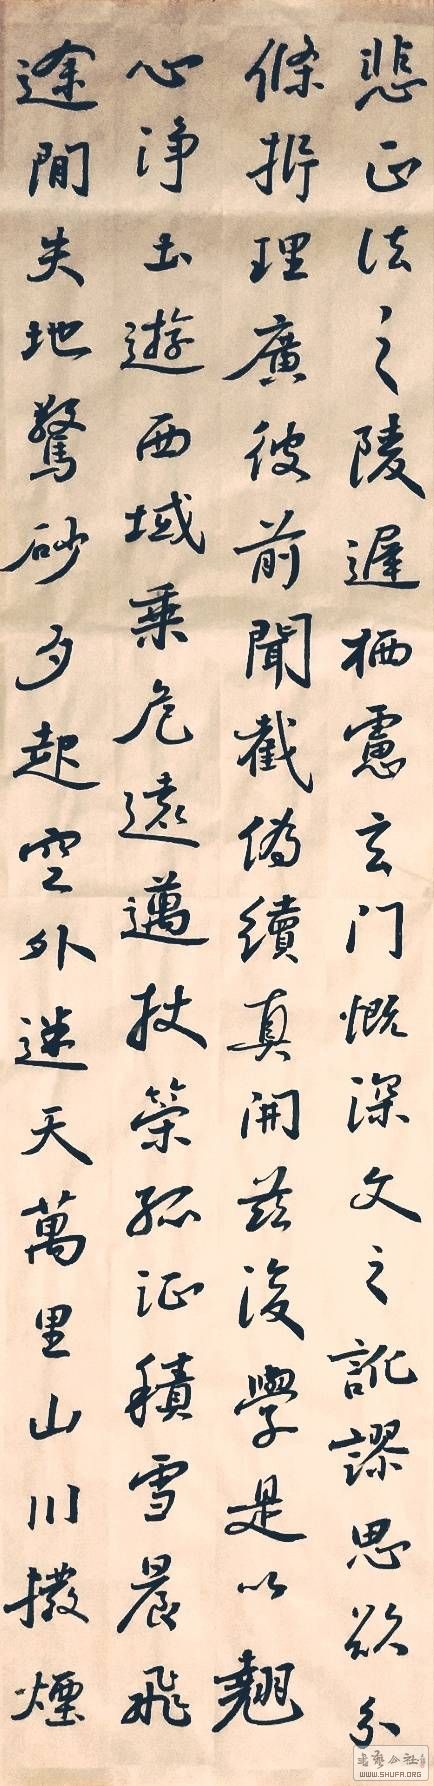 悲正法之陵遲栖慮玄门慨深文之訛謬思欲分
條析理廣彼前聞截偽續真開茲後學是以翹
心淨土遊西域乗危遠邁杖策孤征積雪晨飛
途間失地驚砂夕起空外迷天萬里山川撥煙
書藝公社
WWW.SHUFA.ORG